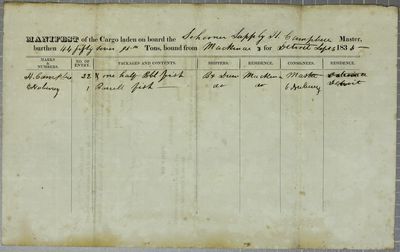 MANIFEST of the Cargo laden on board the Schooner Supply H. Campbell Master,
burthen 46 fifty Tons, bound from Mackinac for Detroit Sept 6 183
MARKS & NUMBERS. NO. OF ENTRY. PACKAGES AND CONTENTS. SHIPPERS. RESIDENCE. CONSIGNEES. RESIDENCE.
H. Campbell 22 one half Bbl fish Mackinac Master
1 Barrell fish do do Detroit